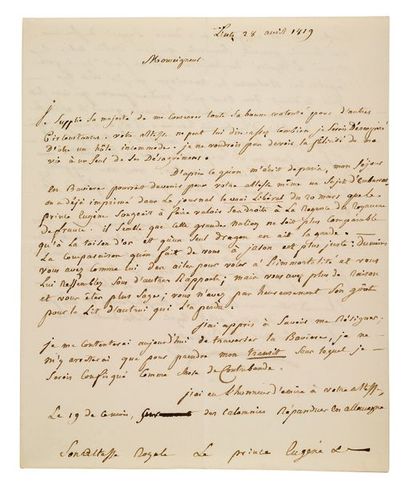 28 avril 1819
Monseigneur
Supplie sa majesté de me conserver toute sa bonne volonté pour d'autres
Circonstances. votre altesse ne peut lui dire assez combien je serois désespéré
D'être un hôte incommode. je ne voudrois pas devoir la félicité de ma
vie à un seul de ses Désagrémens.
D'après ce qu'on m'écrit de paris, mon séjour
En Bavière pourroit devenir pour votre altesse même un Sujet d'Embarras
on a déjà imprimé dans le journal le vrai libéral du 20 mars que le
prince Eugène Songeait à faire valoir ses droits à la Regence du Royaume
de france. il semble que cette grande nation ne soit plus comparable
qu'à la toison d'or et qu'un seul dragon en ait la garde.
La Comparaison qu'on fait de vous à jason est plus juste;
vous avez comme lui des ailes pour voler à l'immortalité et vous
lui ressemblez sous d'autres Rapports; mais vous avez plus de Raison
et vous êtes plus sage; vous n'avez pas heureusement son goût
pour le Lit d'autrui qui l'a perdu.
j'ai appris à savoir me Résigner.
je me contenterai aujourd'hui de traverser la Bavière, je ne
m'y arrêterai que pour prendre mon transit sans lequel je
serois confisqué comme de Contrebande.
j'ai eu l'honneur d'écrire à votre altesse,
Le 19 de ce mois, des calomnies Répandues en allemagne
Son Altesse Royale Le prince Eugène